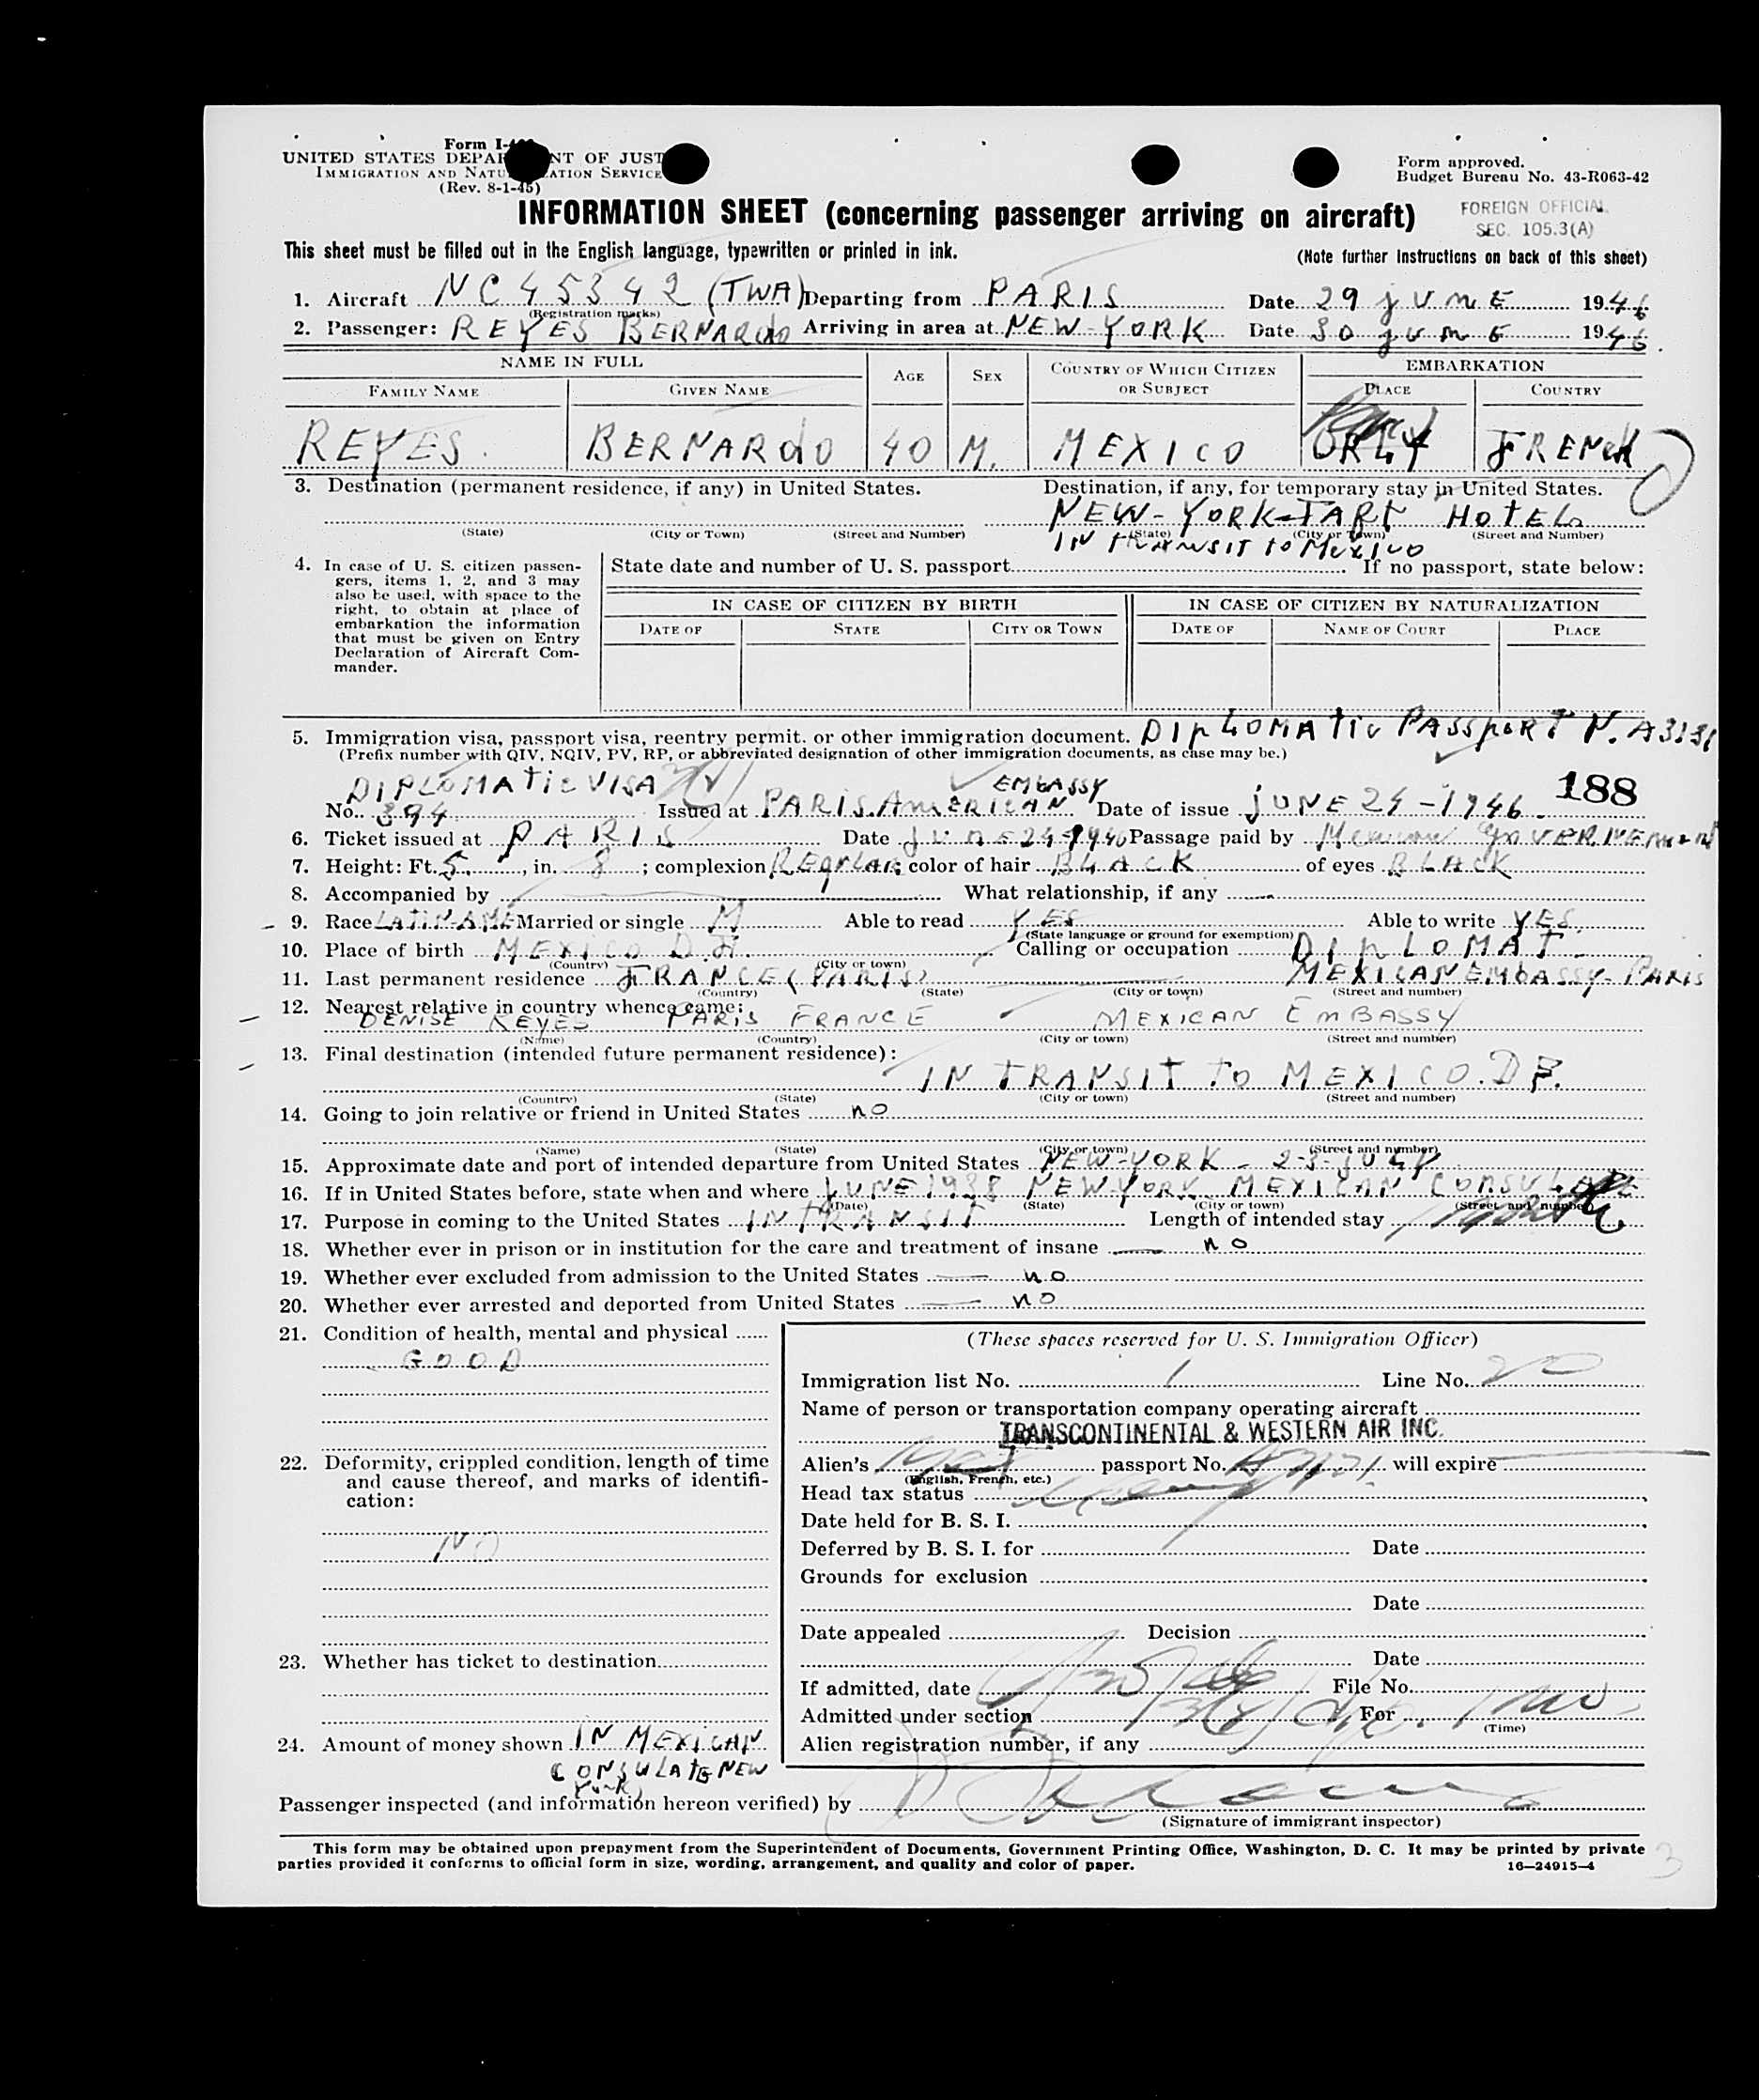 Form I-
UNITED STATES DEPAR NT OF JUST
IMMIGRATION AND NATU ATION SERVICE
(Rev. 8-1-45)
Form approved.
Budget Bureau No. 43-R063-42
INFORMATION SHEET (concerning passenger arriving on aircraft)
FOREIGN OFFICIAL
SEC. 105.3(A)
This sheet must be filled out in the English language, typewritten or printed in ink.
(Note further instructions on back of this sheet)
1. Aircraft NC45342 (TWA) Departing from PARIS Date 29 june 1946
(Registration marks)
2. Passenger: REYES BERNARdo Arriving in area at NEW-YORK Date 30 june 1946.
NAME IN FULL AGE SEX COUNTRY OF WHICH CITIZEN OR SUBJECT EMBARKATION
FAMILY NAME GIVEN NAME PLACE COUNTRY
REYES. BERNARdo 40 M. MEXICO ORLY FRENcH
3. Destination (permanent residence, if any) in United States. Destination, if any, for temporary stay in United States.
NEW-YORK-TAFt HotEL
(State) (City or Town) (Street and Number) (State) (City or Town) (Street and Number)
IN tRANSIT to MEXICO
4. In case of U. S. citizen passengers, items 1, 2, and 3 may also be used, with space to the right, to obtain at place of embarkation the information that must be given on Entry Declaration of Aircraft Commander.
State date and number of U. S. passport If no passport, state below:
IN CASE OF CITIZEN BY BIRTH IN CASE OF CITIZEN BY NATURALIZATION
DATE OF STATE CITY OR TOWN DATE OF NAME OF COURT PLACE
5. Immigration visa, passport visa, reentry permit, or other immigration document. DIpLOMAtic PASSpoRT N. A3131
(Prefix number with QIV, NQIV, PV, RP, or abbreviated designation of other immigration documents, as case may be.)
DIPLOMATic VISA EMBASSY 188
No. 394 Issued at PARIS.AmERICAN Date of issue jUNE 24-1946.
6. Ticket issued at PARIS Date JUNE 24-1946 Passage paid by Mexican GoVERNEment
7. Height: Ft. 5., in. 8; complexion REgULAR; color of hair BLACK of eyes BLACK
8. Accompanied by What relationship, if any
9. Race LATIN-AME Married or single M Able to read YES Able to write YES.
(State language or ground for exemption)
10. Place of birth MEXICO D.F. Calling or occupation DIpLOMAT.
(Country) (City or town)
11. Last permanent residence FRANCE (PARIS) MEXICAN EMbASSY-PARIS
(Country) (State) (City or town) (Street and number)
12. Nearest relative in country whence came:
DENISE REYES PARIS FRANCE MEXICAN EmBASSY
(Name) (Country) (City or town) (Street and number)
13. Final destination (intended future permanent residence):
IN TRANSIT TO MEXICO.DF.
(Country) (State) (City or town) (Street and number)
14. Going to join relative or friend in United States no
(Name) (State) (City or town) (Street and number)
15. Approximate date and port of intended departure from United States NEW-YORK - 2-3-JULY
16. If in United States before, state when and where JUNE 1938 NEW-YORK MEXICAN CONSULATE
(Date) (State) (City or town) (Street and number)
17. Purpose in coming to the United States IN TRANSIT Length of intended stay
18. Whether ever in prison or in institution for the care and treatment of insane no
19. Whether ever excluded from admission to the United States no
20. Whether ever arrested and deported from United States no
21. Condition of health, mental and physical
GOOD
22. Deformity, crippled condition, length of time and cause thereof, and marks of identification:
NO
23. Whether has ticket to destination
24. Amount of money shown IN MEXICAN
CONSULAtE NEW
YorK
(These spaces reserved for U. S. Immigration Officer)
Immigration list No. 1 Line No. 20
Name of person or transportation company operating aircraft
TRANSCONTINENTAL & WESTERN AIR INC.
Alien's passport No. will expire
(English, French, etc.)
Head tax status
Date held for B. S. I.
Deferred by B. S. I. for Date
Grounds for exclusion
Date
Date appealed Decision
Date
If admitted, date File No.
Admitted under section For
(Time)
Alien registration number, if any
Passenger inspected (and information hereon verified) by
(Signature of immigrant inspector)
This form may be obtained upon prepayment from the Superintendent of Documents, Government Printing Office, Washington, D. C. It may be printed by private
parties provided it conforms to official form in size, wording, arrangement, and quality and color of paper. 16—24915-4
3